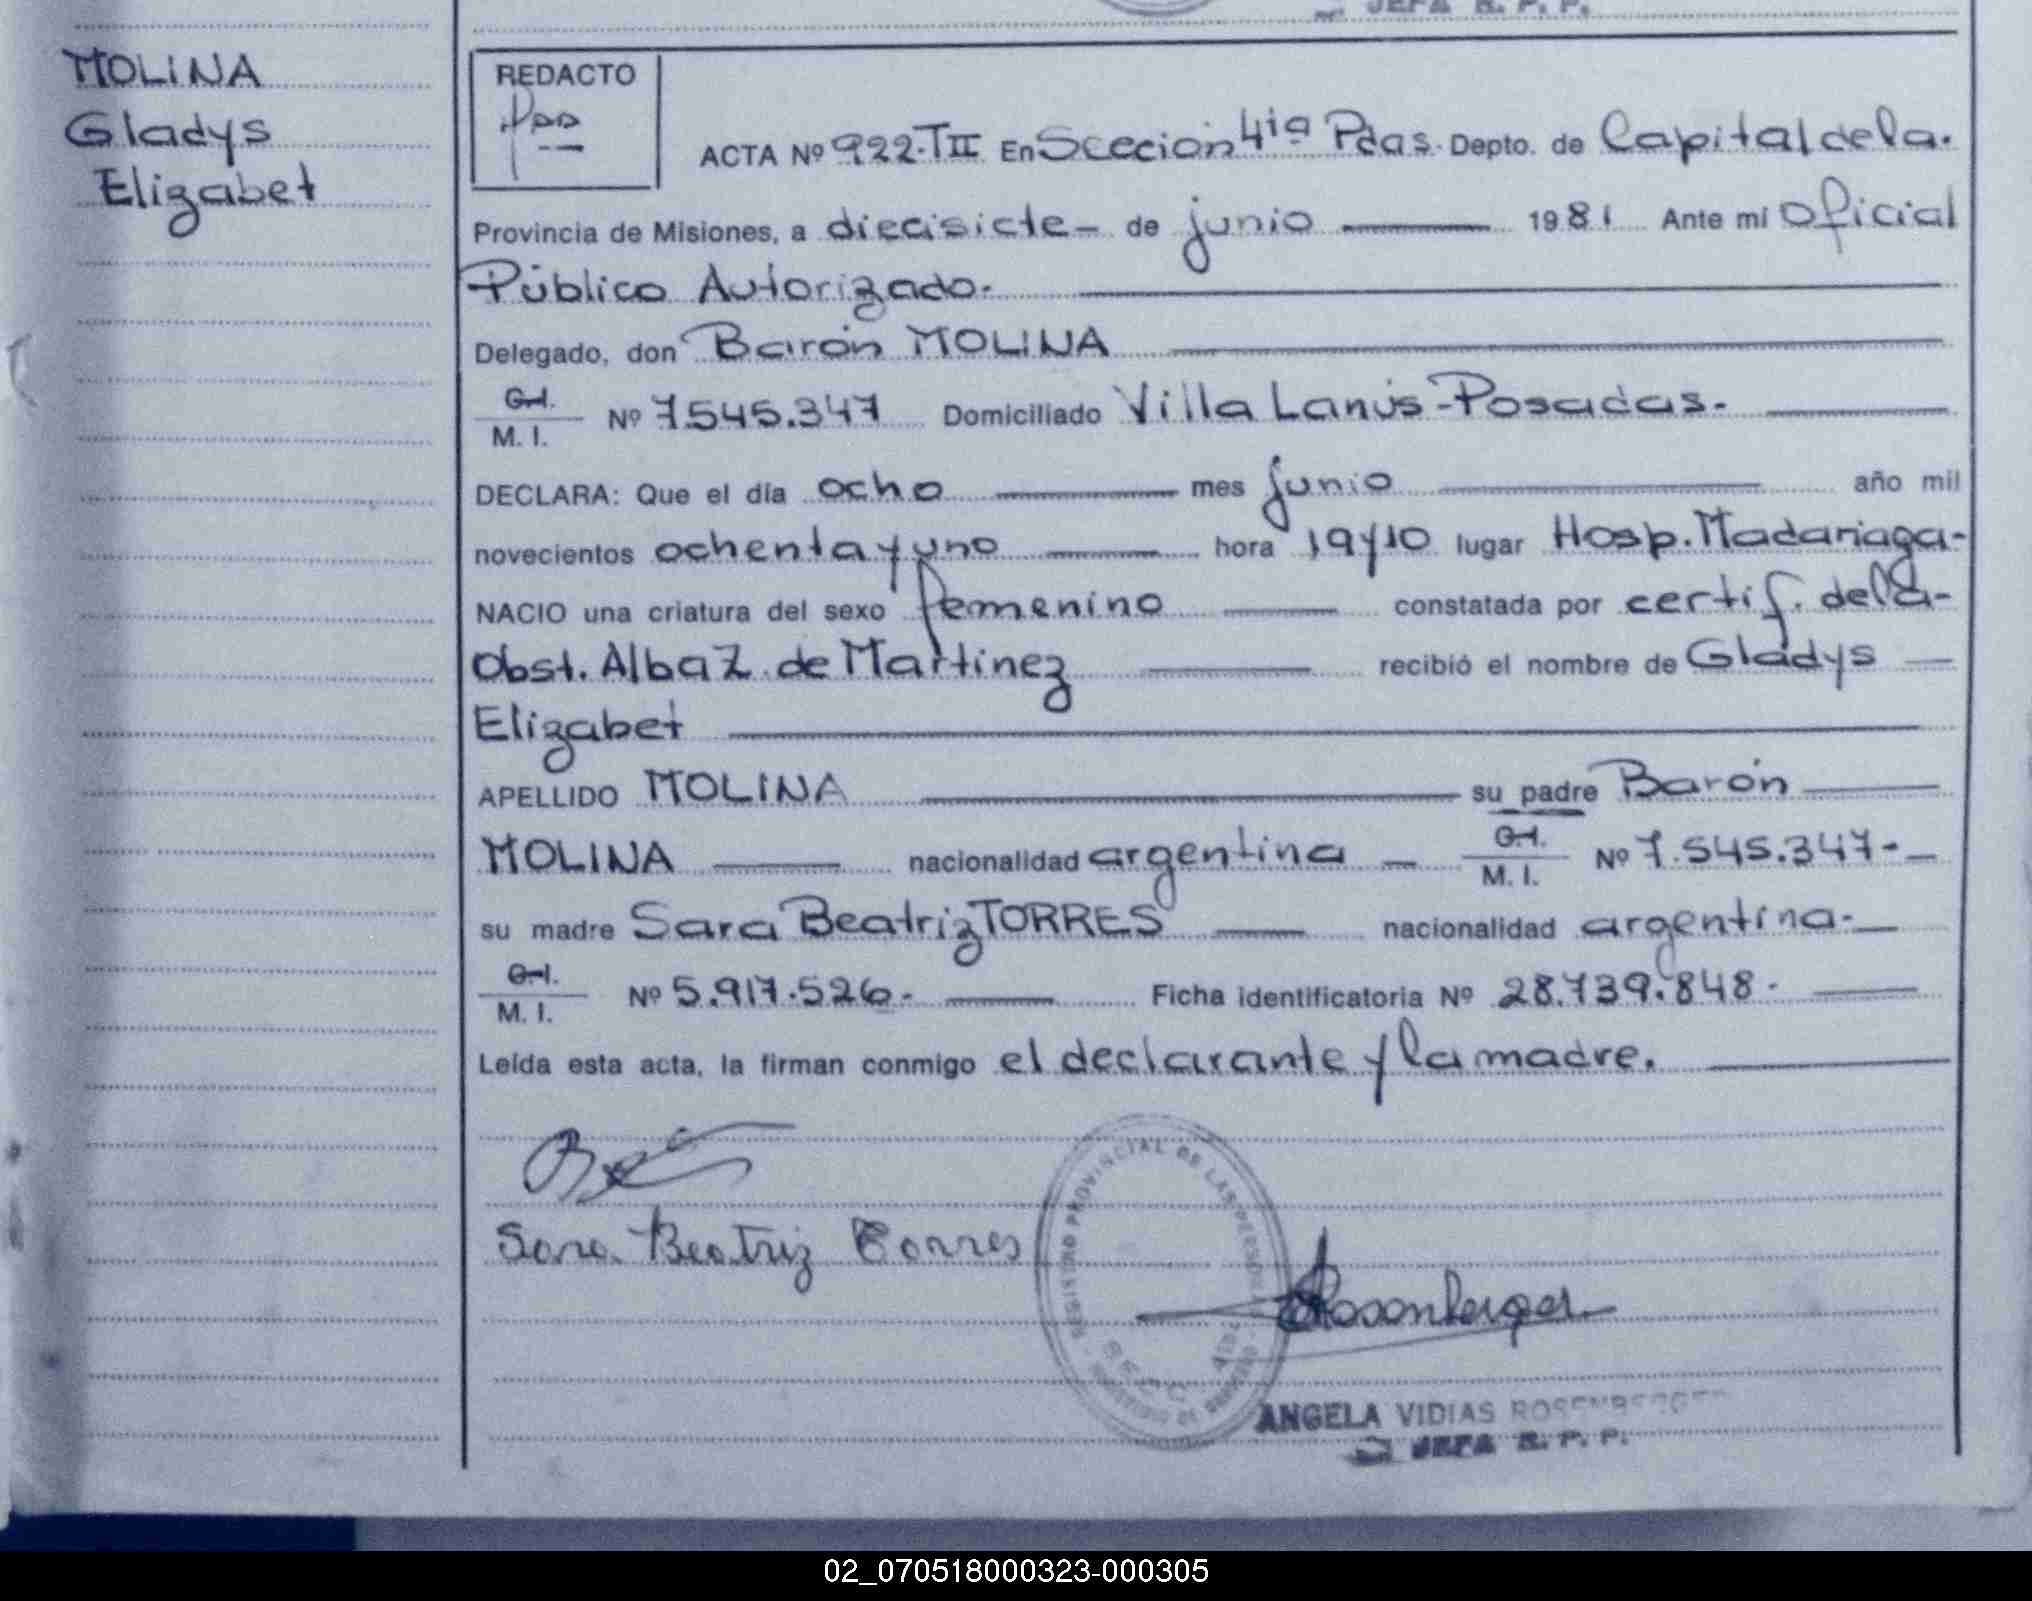 JEFA R. P. P.
MOLINA
Gladys
Elizabet
REDACTO
ACTA Nº 922-TII En Sección 4ta Pdas. Depto. de Capital de la.
Provincia de Misiones, a diecisiete - de junio 1981 Ante mí Oficial
Público Autorizado.
Delegado, don Barón MOLINA
C.I. M. I. Nº 7.545.347 Domiciliado Villa Lanús - Posadas.
DECLARA: Que el día ocho mes junio año mil
novecientos ochenta y uno hora 19 y 10 lugar Hosp. Madariaga-
NACIO una criatura del sexo femenino constatada por certif. de la-
Obst. Alba Z. de Martinez recibió el nombre de Gladys
Elizabet
APELLIDO MOLINA su padre Barón
MOLINA nacionalidad argentina C.I. M. I. Nº 7.545.347-
su madre Sara Beatriz TORRES nacionalidad argentina-
C.I. M. I. Nº 5.917.526- Ficha identificatoria Nº 28.739.848-
Leída esta acta, la firman conmigo el declarante y la madre.
Sara Beatriz Torres
REGISTRO PROVINCIAL DE LAS PERSONAS
SECC. 4ta
Rosenberger
ANGELA VIDIAS ROSENBERGER
JEFA R. P. P.
02_070518000323-000305